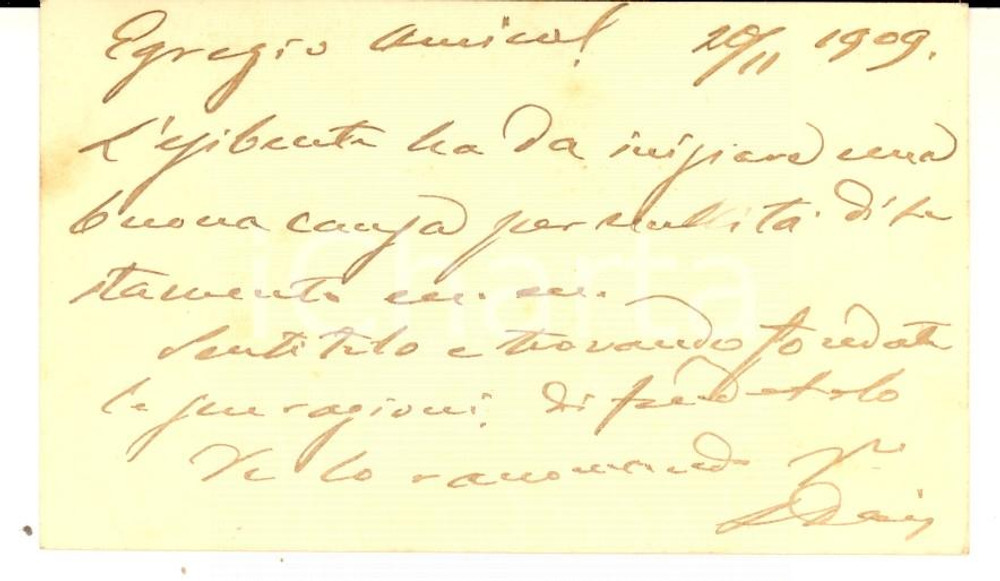 Egregio Amico! 20/11 1909.
L'esibente ha da iniziare una
buona causa per nullità di te
stamento
Sentitelo e trovando fondate
le sue ragioni, difendetelo
Ve lo raccomando
iCharta